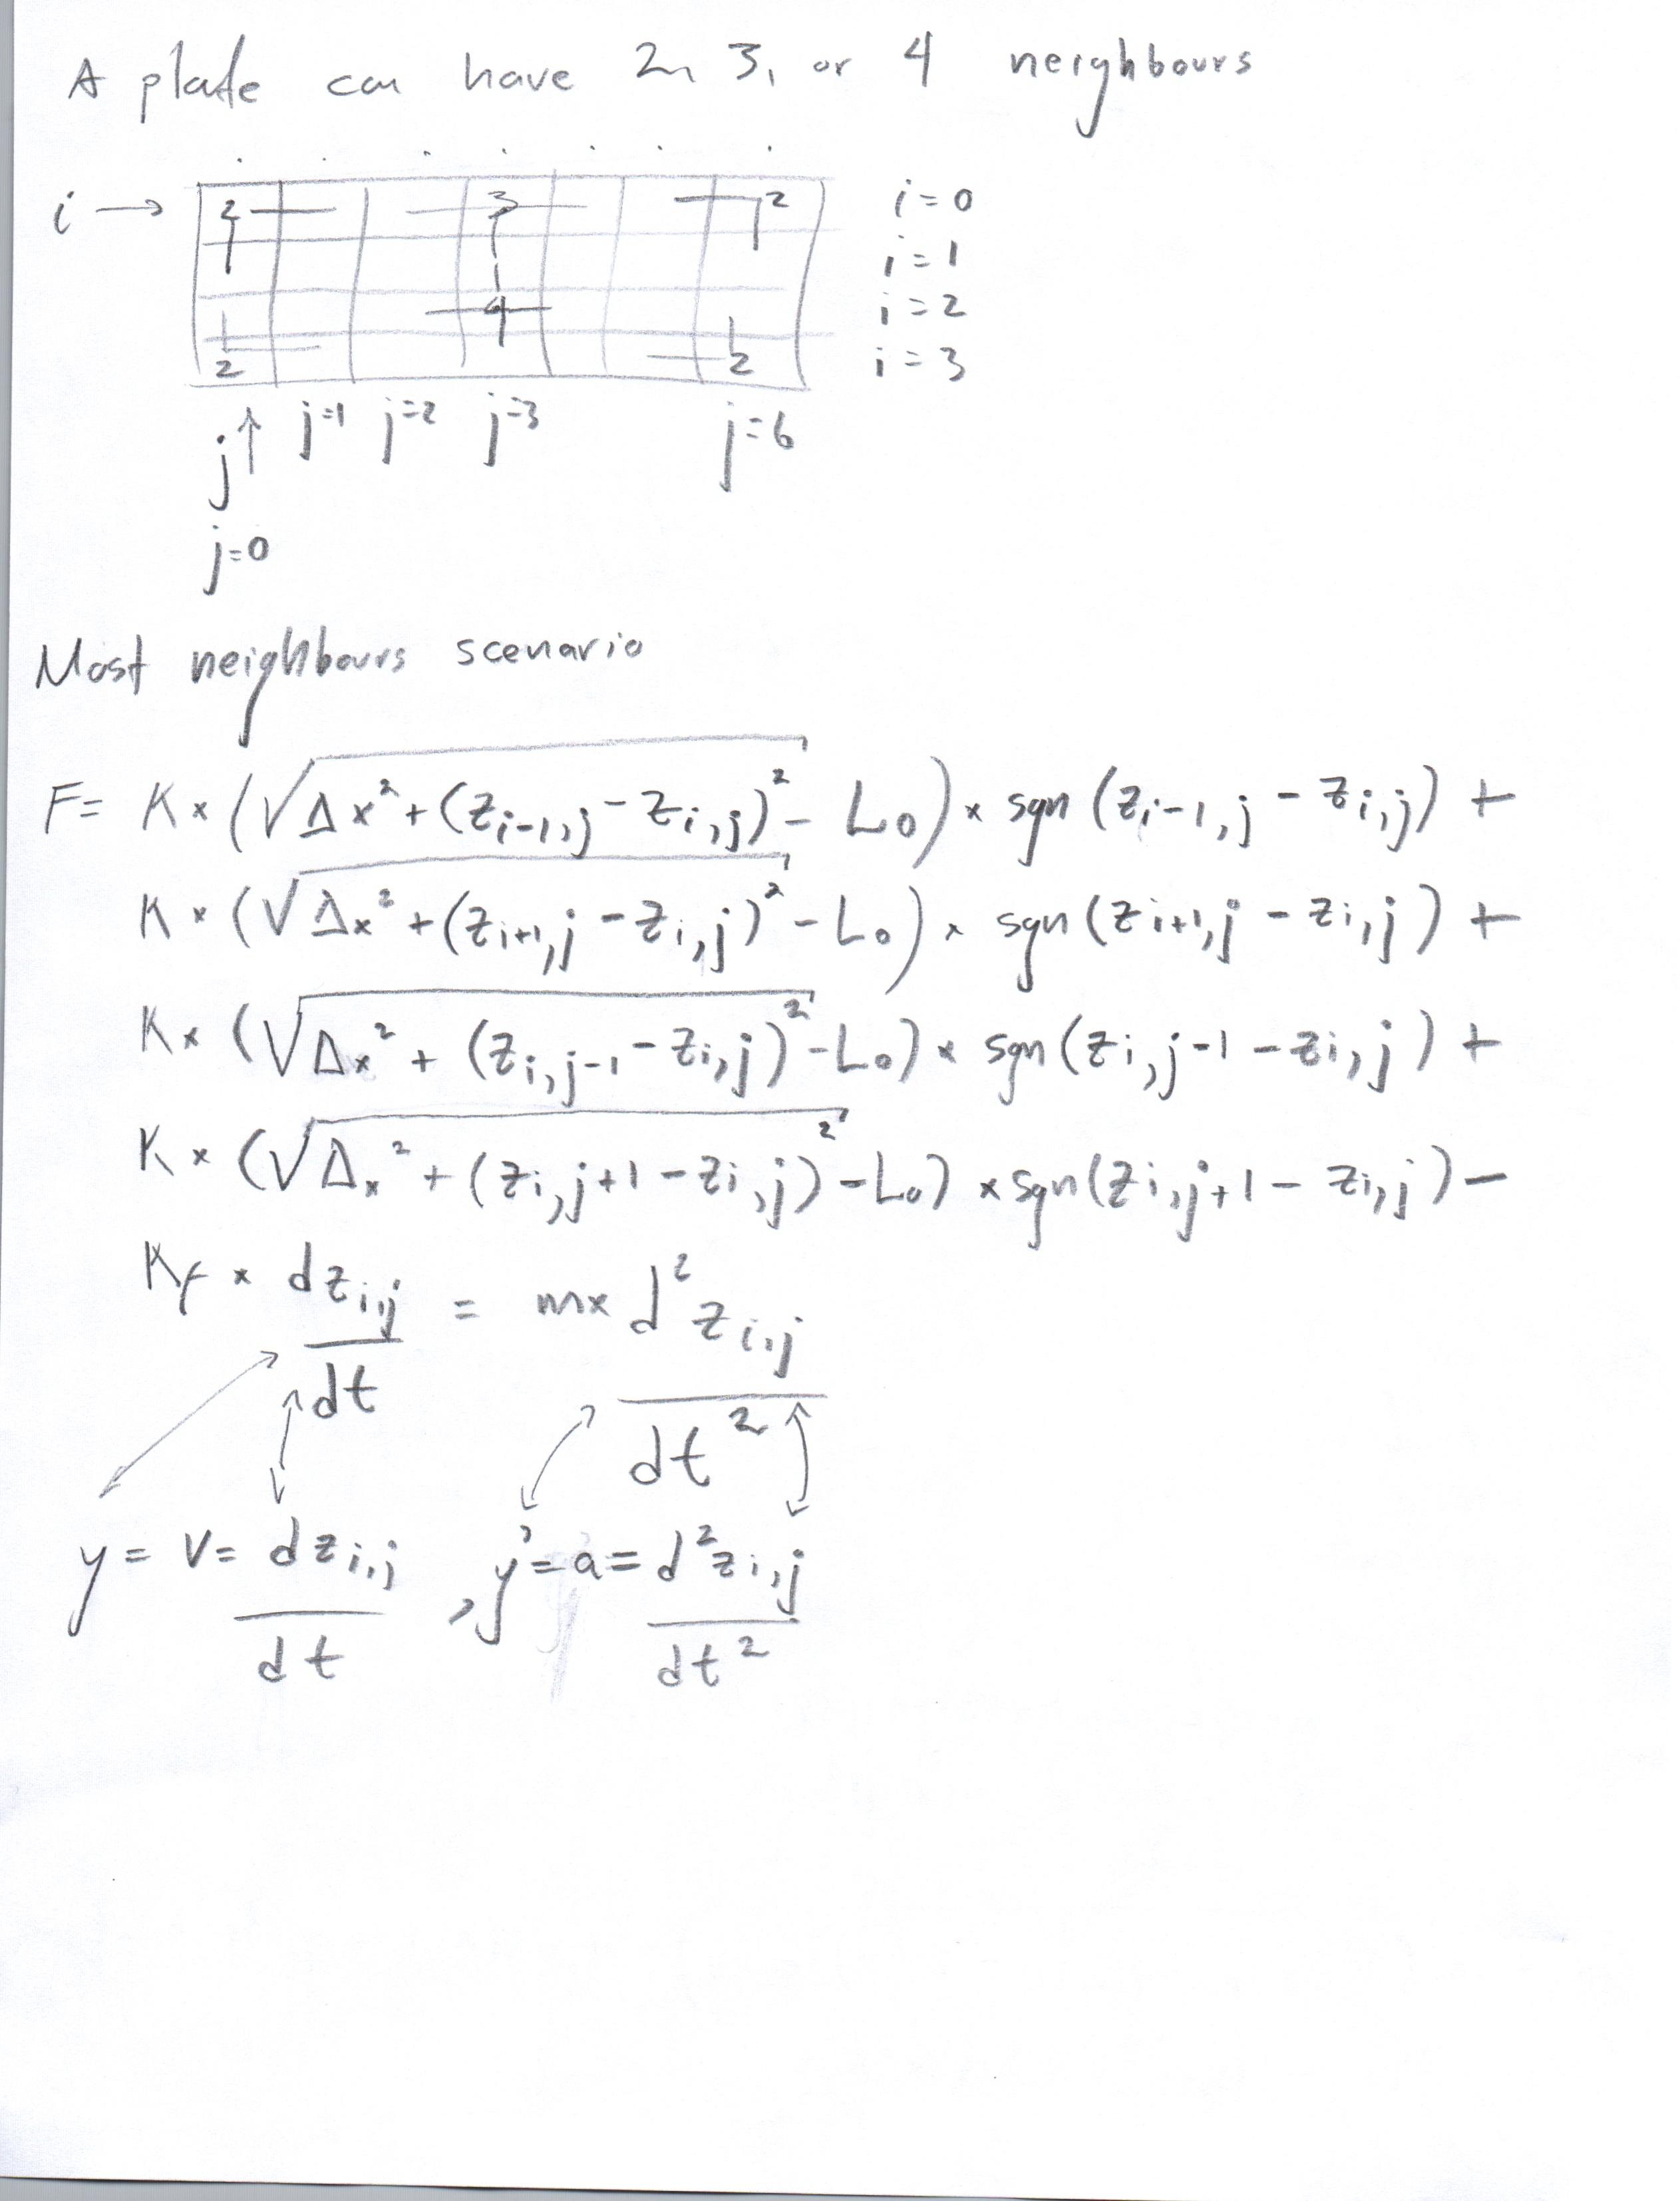 A plate can have 2, 3, or 4 neighbours
i → 2 3 2 i=0
i=1
4 i=2
2 2 i=3
j ↑ j=1 j=2 j=3 j=6
j=0
Most neighbours scenario
F= K × (√Δx² + (z i-1,j - z i,j)² - L₀) × sgn (z i-1,j - z i,j) +
K × (√Δx² + (z i+1,j - z i,j)² - L₀) × sgn (z i+1,j - z i,j) +
K × (√Δx² + (z i,j-1 - z i,j)² - L₀) × sgn (z i,j-1 - z i,j) +
K × (√Δx² + (z i,j+1 - z i,j)² - L₀) × sgn (z i,j+1 - z i,j) -
Kf × dz i,j / dt = m × d² z i,j / dt²
y = v = dz i,j / dt , y' = a = d² z i,j / dt²